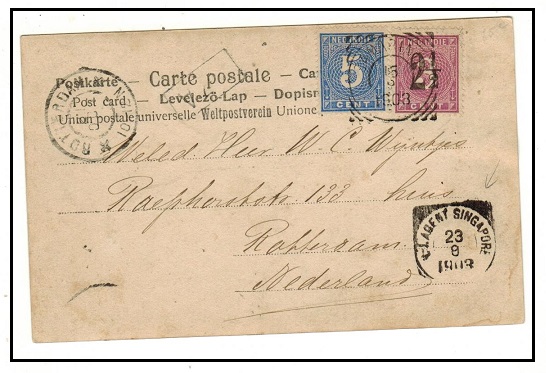 NED.INDIE
5
CENT
2½
1903
Postkarte — Carte postale — Ca
Post card — Levelező-Lap — Dopisn
Union postale universelle Weltpostverein Unione
ROTTERDAM
Weled Heer W. C. Wijntjes
Raephorststr 133 huis
Rotterdam
Nederland
N.I. AGENT SINGAPORE
23
9
1903